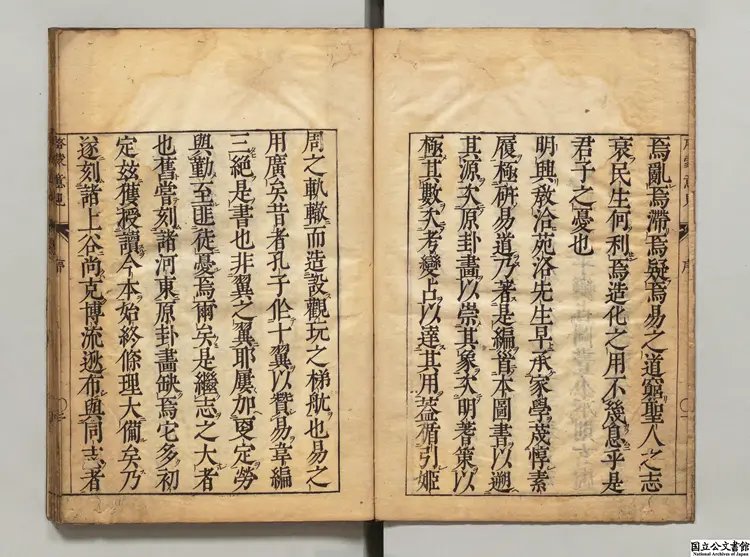 焉亂焉滯焉疑焉易之道窮聖人之志
衰民生何利焉造化之用不幾息乎是
君子之憂也
明興教洽苑洛先生早承家學茂惇素
履極研易道乃著是編首本圖書以遡
其源次原卦畫以崇其象次明著策以
極其數次考變占以達其用葢循引姬
周之軌轍而造設觀玩之梯航也易之
用廣矣昔者孔子作十翼以贊易韋編
三絶是書也非翼之翼耶屢加更定勞
與勤至匪徒憂焉爾矣是繼志之大者
也舊嘗刻諸河東原卦畫缺焉它多初
定玆獲授讀今本始終條理大僃矣乃
遂刻諸上谷尚克博流遐布與同志者
啓蒙意見
序
国立公文書館
National Archives of Japan